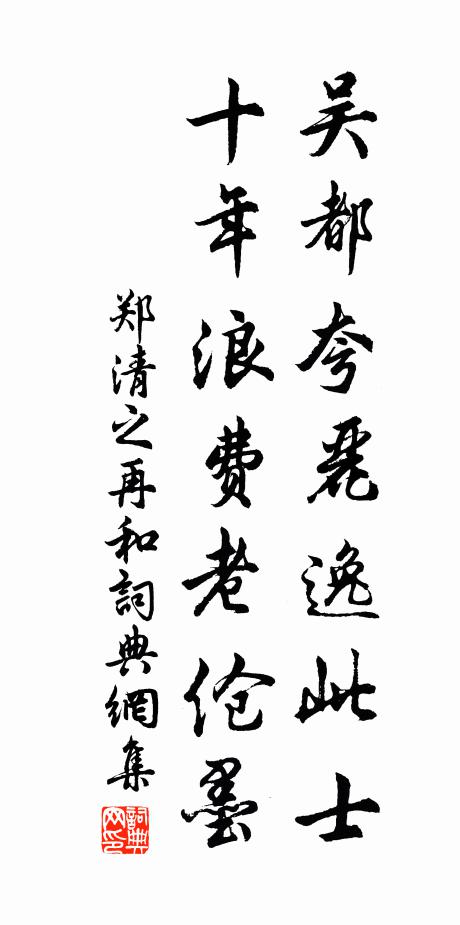 吴都夸麗逸此士
十年浪费老伧墨
郑清之再和詞典網集
詞典网印